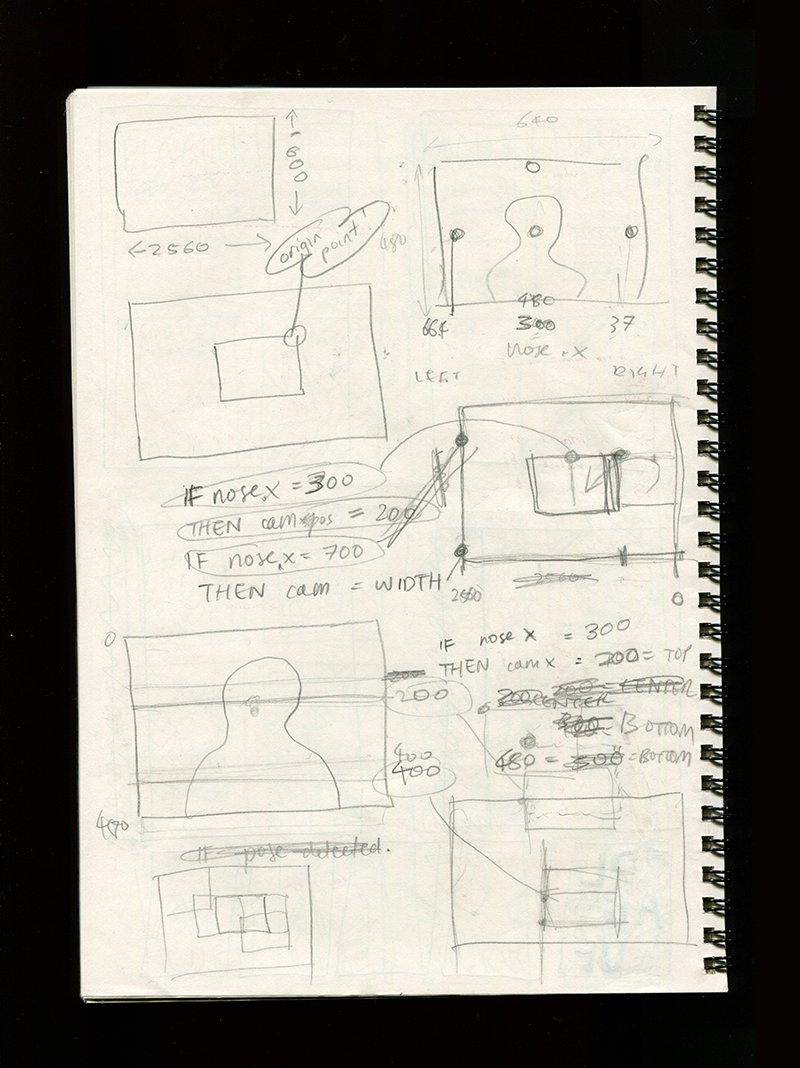 640
1600
←2560→
origin
point
480
480
664
300
37
nose.x
LEFT
RIGHT
IF nose.x = 300
THEN cam.pos = 200
IF nose.x = 700
THEN cam = WIDTH
2560
2560
0
0
IF nose x = 300
THEN cam x = 200 = TOP
200
200
200 = CENTER
CENTER
= BOTTOM
400
400
480 = 500 = BOTTOM
480
IF pose detected.